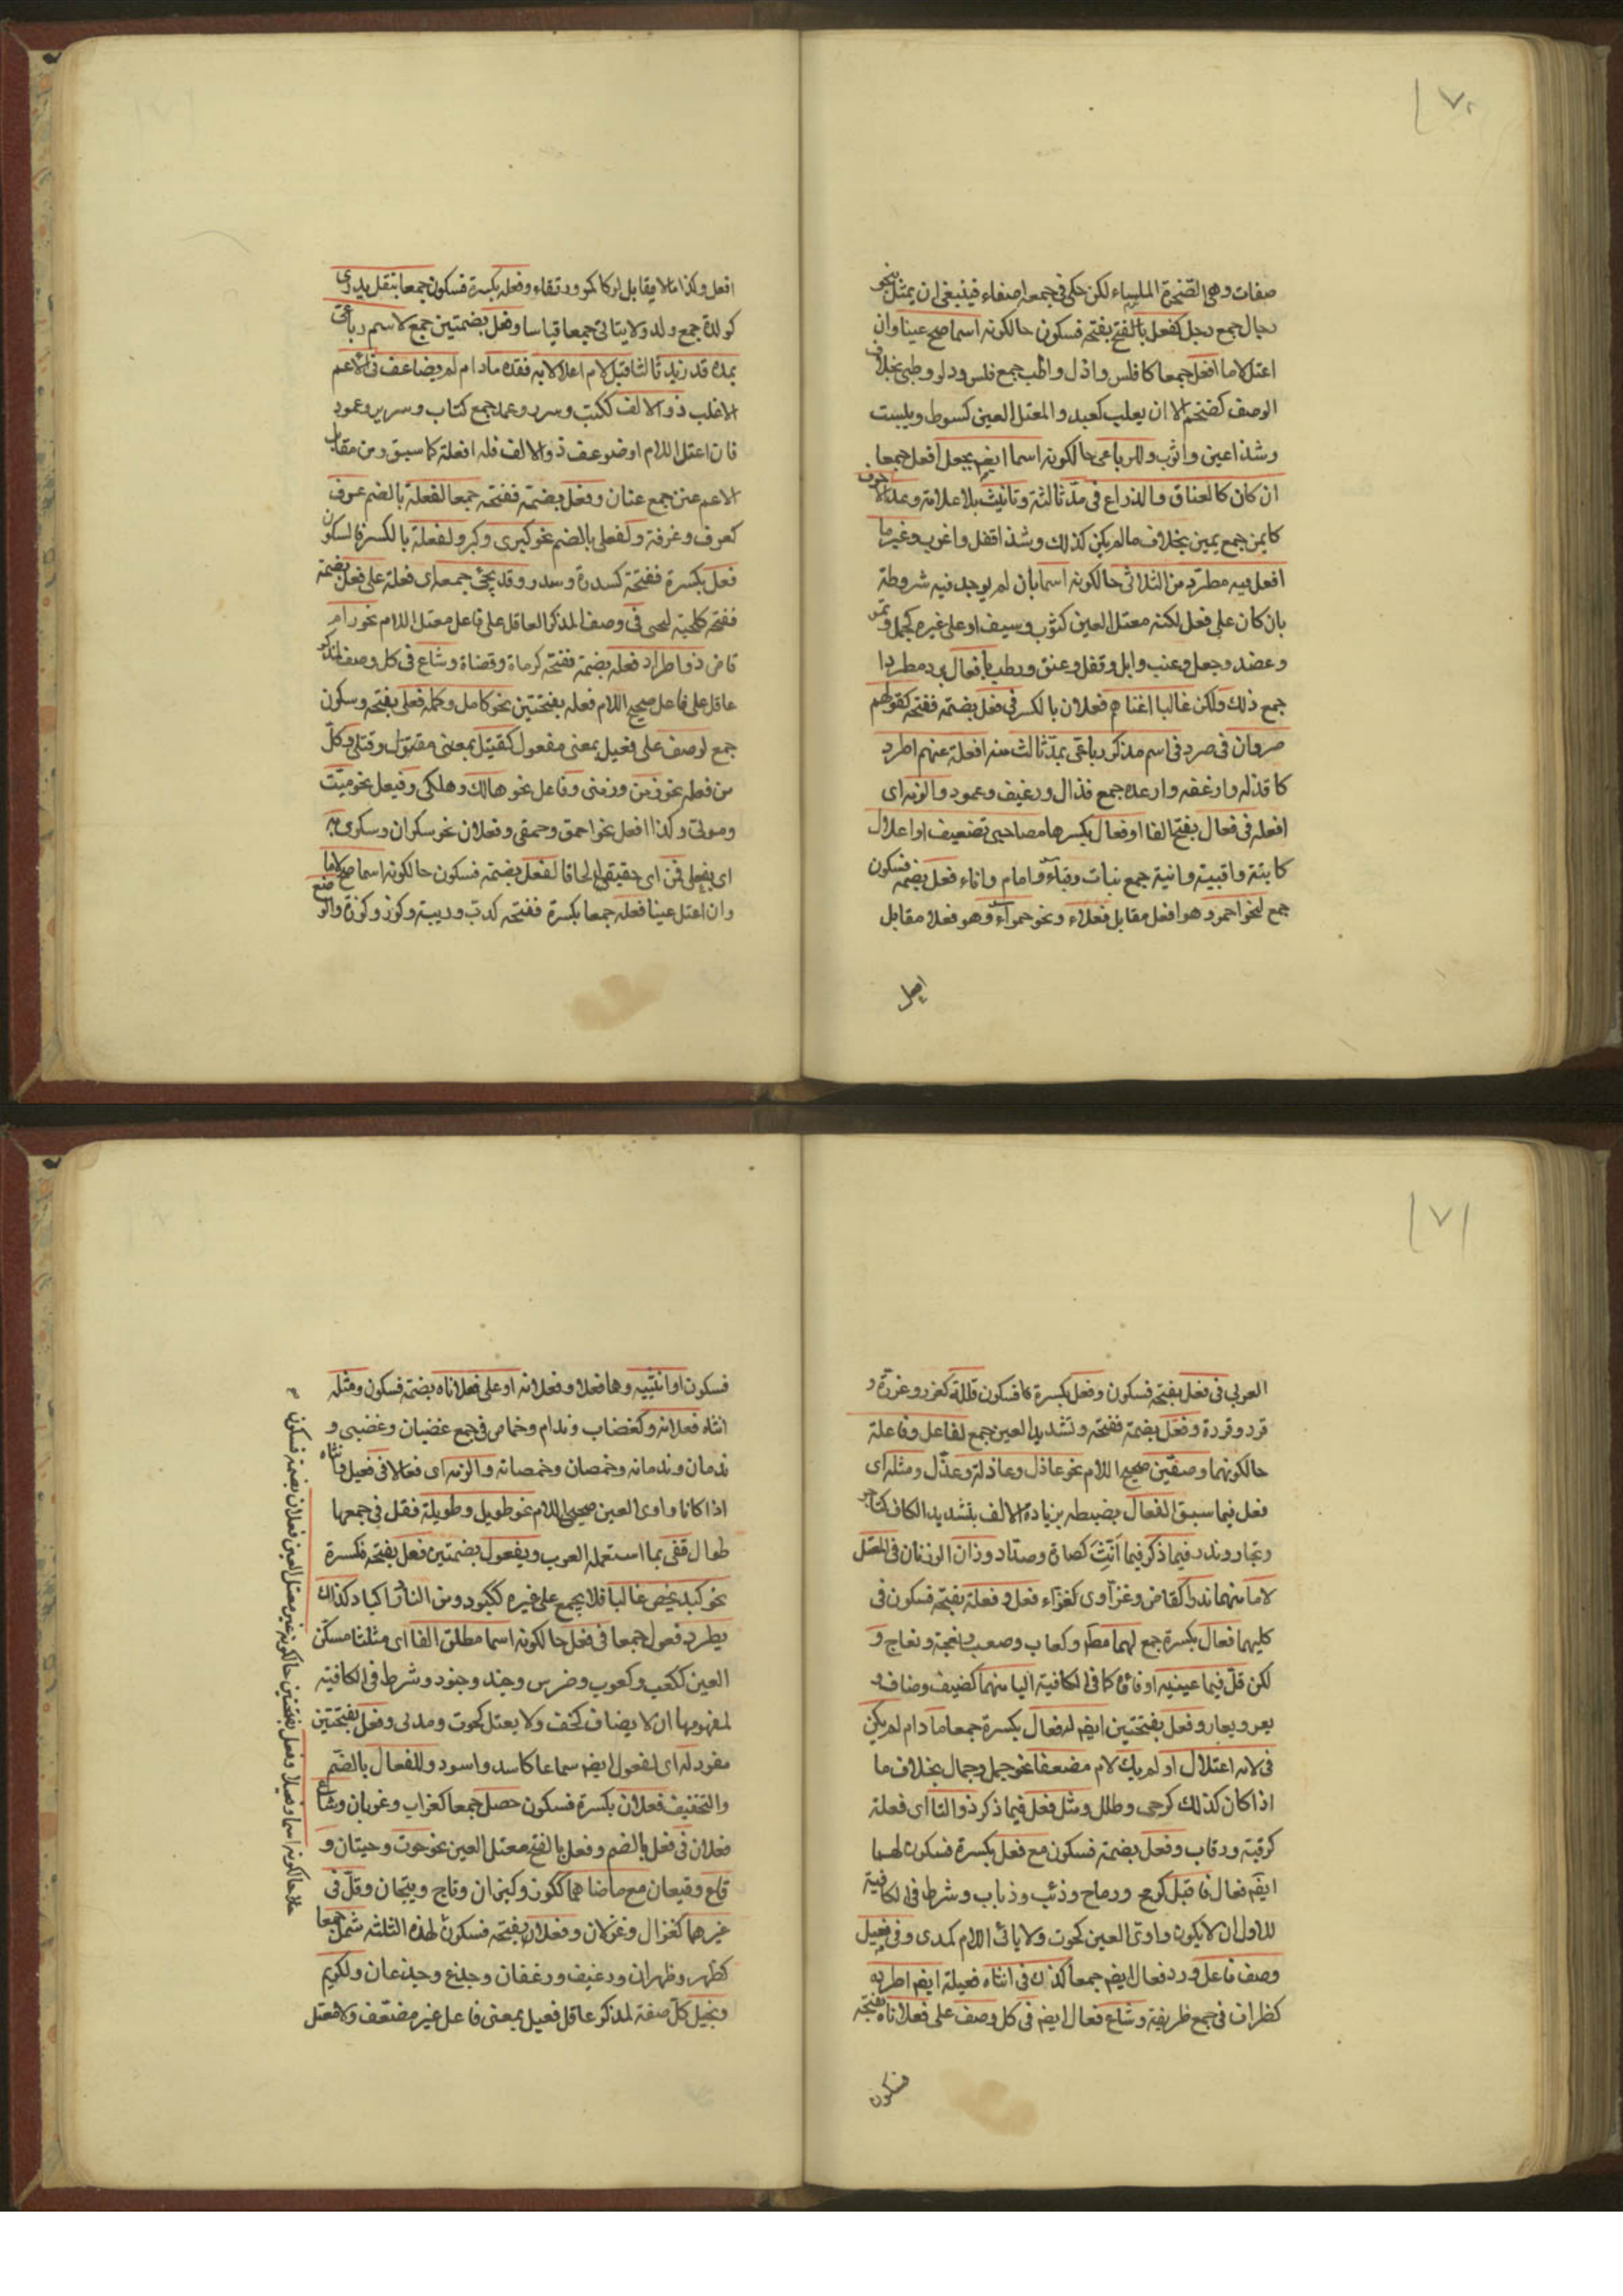 ١٧٠
صفات وهى الصخرة الملساء لكن حكى فى جمعه اصفاء فينبغى ان يمثل بنحو
رجال جمع رجل كفعل بالفتح بفتحة فسكون حالكونه اسما صح عينا وان
اعتل لاما افعل جمعا كافلس وادل واظب جمع فلس ودلو وظبى بخلاف
الوصف كضخم الا ان يغلب كعبد والمعتل العين كسوط وبيت
وشذ اعين واثوب وللرباعى حالكونه اسما ايضا يجعل افعل جمعا
ان كان كالعناق والذراع فى مد ثالثة وتانيث بلا علامة وعد الاحرف
كايمن جمع يمين بخلاف مالم يكن كذلك وشذ اقفل واغرب وغير ما
افعل فيه مطرد من الثلاثى حالكونه اسما بان لم يوجد فيه شروطه
بان كان على فعل لكنه معتل العين كثوب وسيف او على غيره كجمل ونمر
وعضد وجعل وعنب وابل وقفل وعنق ورطب بافعال يرد مطردا
جمع ذلك ولكن غالبا اغناهم فعلان بالكسر فى فعل بضمة ففتحة كقولهم
صردان فى صرد فى اسم مذكر رباعى بمد ثالث منه افعلة عنهم اطرد
كاقذلة وارغفه واعمده جمع قذال ورغيف وعمود والزمه اى
افعله فى فعال بفتح الفا او فعال بكسرها مصاحبى تضعيف او اعلال
كابتة واقبية وانية جمع بتات وقباء وامام واناء فعل بضمة فسكون
جمع لنحو احمر وهو افعل مقابل فعلاء ونحو حمراء وهو فعلا مقابل
افعل
افعل وكذا مالا يقابل له كاكمر ورتقاء وفعله بكسرة فسكون جمعا بنقل يدرى
كولدة جمع ولد ولا ياتى جمعا قياسا وفعل بضمتين جمع لاسم رباعى
بمده قد زيد ثالثا قبل لام اعلالا به فقده مادام لم يضاعف فى الاعم
الاغلب ذو الالف ككتب وسرر وعمد جمع كتاب وسرير وعمود
فان اعتل اللام او ضوعف ذو الالف فله افعلة كما سبق ومن مقابل
الاعم عنن جمع عنان وفعل بضمة ففتحة جمعا لفعلة بالضم عرف
كعرف وغرفة ولفعلى بالضم نحو كبرى وكبر ولفعلة بالكسر فالسكون
فعل بكسرة ففتحة كسدرة وسدر وقد يجئ جمعه اى فعلة على فعل بضمة
ففتحة كلحية لحى فى وصف المذكر العاقل على فاعل معتل اللام نحو رام
قاض ذو اطراد فعله بضمة ففتحة كرماة وقضاة وشاع فى كل وصف لمذكر
عاقل على فاعل صحيح اللام فعله بفتحتين نحو كامل وكمله فعلى بفتحة وسكون
جمع لوصف على فعيل بمعنى مفعول كقتيل بمعنى مقتول وقتلى وكل
من فعل نحو زمن وزمنى وفاعل نحو هالك وهلكى وفيعل نحو ميت
وموتى وكذا افعل نحو احمق وحمقى وفعلان نحو سكران وسكرى به
اى بفعلى قمن اى حقيق الحاقا لفعل بضمة فسكون حالكونه اسما صح لاما
وان اعتل عينا فعله جمعا بكسرة ففتحة كدب ودببة وكوز وكوزة والوضع
١٧١
العربى فى فعل بفتحة فسكون وفعل بكسرة فسكون قلله كغرد وغردة و
قرد وقردة وفعل بضمة ففتحة وتشديد العين جمع لفاعل وفاعلة
حالكونهما وصفين صحيح اللام نحو عاذل وعاذلة وعذل ومثله اى
فعل فيما سبق الفعال بضبطه بزيادة الالف بتشديد الكاف كتاجر
وتجار وندر فيما ذكر فيما انث كصادة وصداد وزان الوزنان فى المعتل
لاما منهما ندرا كغاز وغزى وكغزاء فعل وفعلة بفتحة فسكون فى
كليهما فعال بكسرة جمع لهما مطلقا وكعاب وصعب ونعجة ونعاج و
لكن قل فيما عينه او فائه كما فى الكافية اليا منهما كضيف وضياف و
يعر ويعار وفعل بفتحتين ايضا له فعال بكسرة جمعا مادام لم يكن
فى لامه اعتلال او لم يك لام مضعفا نحو جمل وجمال بخلاف ما
اذا كان كذلك كرحى وطلل ومثل فعل فيما ذكر ذو التا اى فعلة
كرقبة ورقاب وفعل بضمة فسكون مع فعل بكسرة فسكون لهما
ايضا فعال فاقبل كرمح ورماح وذئب وذياب وشرط فى الكافية
للاول ان لا يكون واوى العين كحوت ولا يائى اللام كمدى وفى فعيل
وصف فاعل ورد فعال ايضا جمعا كذاك فى انثاه فعيلة ايضا اطرد
كظراف فى جمع ظريفة وشاع فعال ايضا فى كل وصف على فعلانا بفتحة
فسكون
فسكون او انثييه وهما فعلى وفعلانه او على فعلانا بضمة فسكون ومثله
انثاه فعلانه وكغضاب وندام وخماص فى جمع غضبان وغضبى و
ندمان وندمانه وخمصان وخمصانة والزمه اى فعالا فى فعيل وانثاه
اذا كانا واوى العين صحيحى اللام نحو طويل وطويلة فقل فى جمعها
طوال تفى بما استعمله العرب وبفعول بضمتين فعل بفتحة فكسرة
نحو كبد يخص غالبا فلا يجمع على غيره ككبود ومن النادر اكباد كذاك
يطرد فعول جمعا فى فعل حالكونه اسما مطلق الفا اى مثلثا مسكن
العين ككعب وكعوب وضرس وجند وجنود وشرط فى الكافية
لمفهومها ان لا يضاعف كخف ولا يعتل كحوت ومدى وفعل بفتحتين
مفرد له اى لفعول ايضا سماعا كاسد واسود وللفعال بالضم
والتخفيف فعلان بكسرة فسكون حصل جمعا كغراب وغربان وشاع
فعلان فى فعل بالضم وفعل بالفتح معتل العين نحو حوت وحيتان و
قاع وقيعان مع ما ضاهاهما ككوز وكيزان وتاج وتيجان وقل فى
غيرهما كغزال وغزلان وفعلان بفتحة فسكون لهذه الثلثة شمل جمعا
كظهر وظهران ورغيف ورغفان وجذع وجذعان ولكريم
وبخيل كل صفة لمذكر عاقل فعيل بمعنى فاعل غير مضعف ولا معتل
فعلا حالكونه اسما وفعيلا وفعل بفتحتين حالكونه غير معتل العين فعلان بضمة فسكون